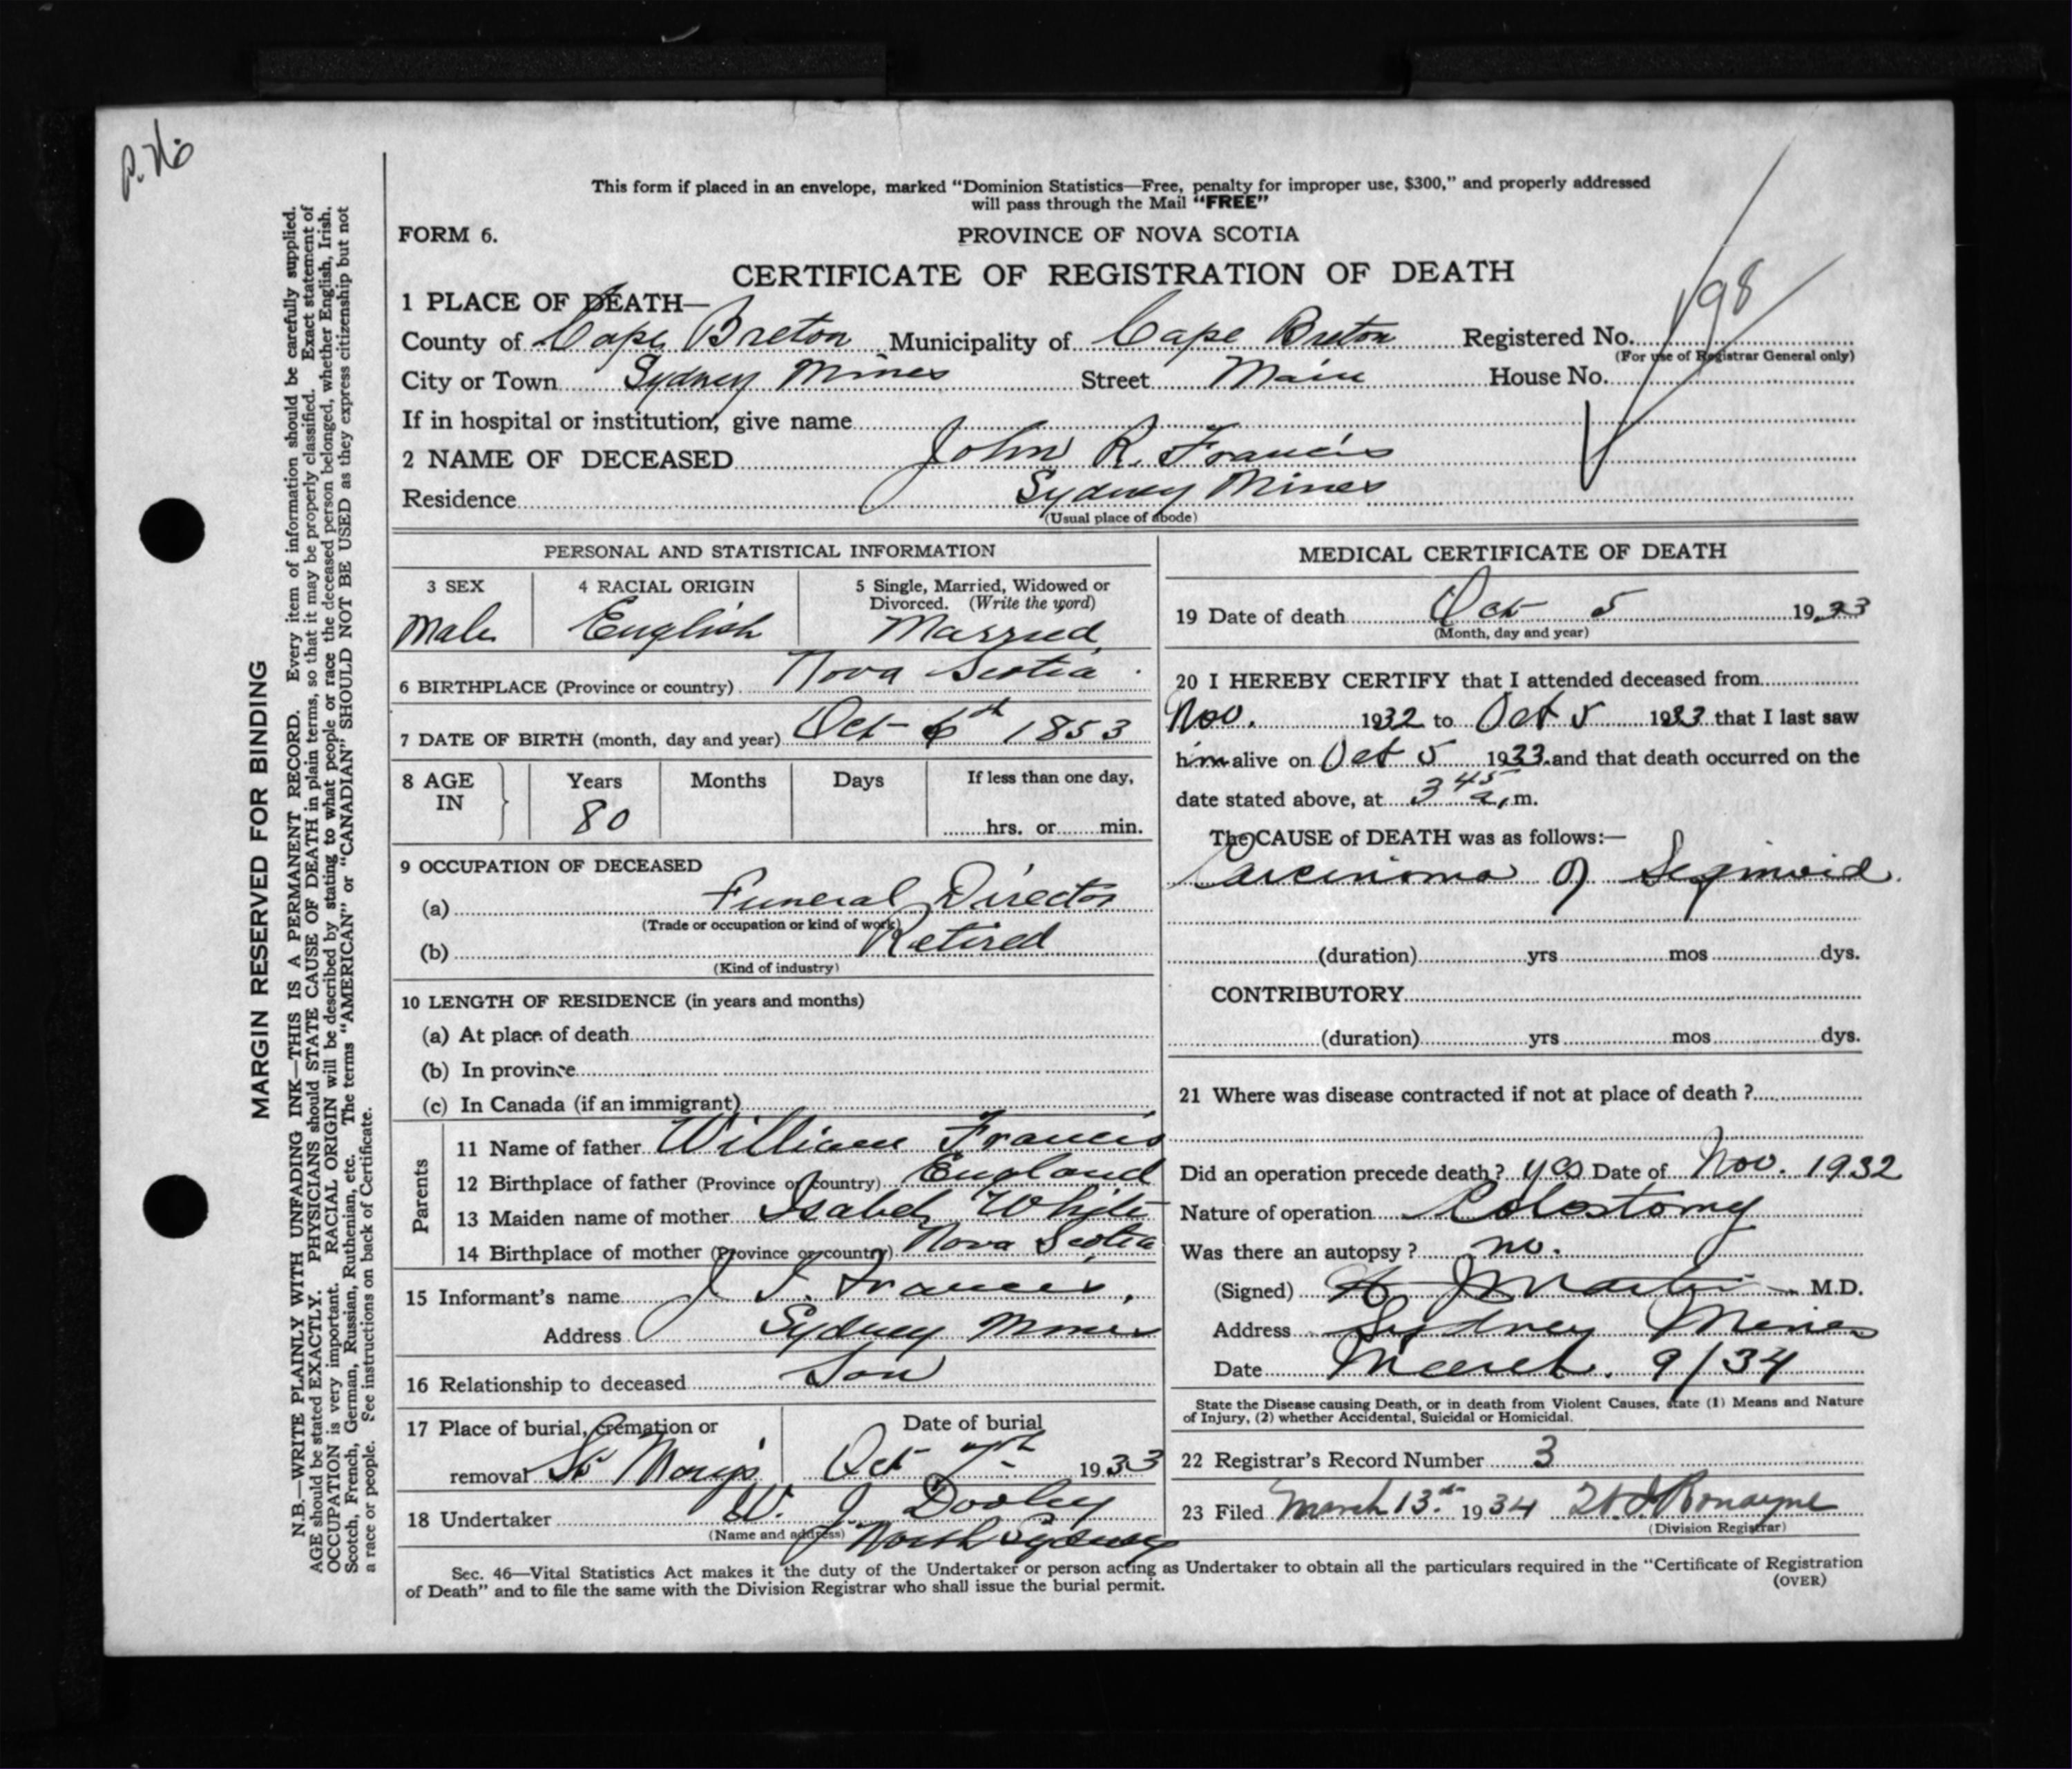 This form if placed in an envelope, marked "Dominion Statistics—Free, penalty for improper use, $300," and properly addressed
will pass through the Mail "FREE"
FORM 6.
PROVINCE OF NOVA SCOTIA
CERTIFICATE OF REGISTRATION OF DEATH
198
1 PLACE OF DEATH—
County of Cape Breton Municipality of Cape Breton Registered No.
(For use of Registrar General only)
City or Town Sydney Mines Street Main House No.
If in hospital or institution, give name
2 NAME OF DECEASED John R. Francis
Residence Sydney Mines
(Usual place of abode)
PERSONAL AND STATISTICAL INFORMATION
3 SEX 4 RACIAL ORIGIN 5 Single, Married, Widowed or
Divorced. (Write the word)
Male English Married
6 BIRTHPLACE (Province or country) Nova Scotia
7 DATE OF BIRTH (month, day and year) Oct 6th 1853
8 AGE Years Months Days If less than one day,
IN
80 hrs. or min.
9 OCCUPATION OF DECEASED
(a) Funeral Director
(Trade or occupation or kind of work)
(b) Retired
(Kind of industry)
10 LENGTH OF RESIDENCE (in years and months)
(a) At place of death
(b) In province
(c) In Canada (if an immigrant)
Parents
11 Name of father William Francis
12 Birthplace of father (Province or country) England
13 Maiden name of mother Isabel White
14 Birthplace of mother (Province or country) Nova Scotia
15 Informant's name J. Francis,
Address Sydney Mines
16 Relationship to deceased Son
17 Place of burial, cremation or Date of burial
removal St Mary's Oct 7th 1933
18 Undertaker W. J. Dooley
(Name and address) North Sydney
MEDICAL CERTIFICATE OF DEATH
19 Date of death Oct 5 1933
(Month, day and year)
20 I HEREBY CERTIFY that I attended deceased from
Nov. 1932 to Oct 5 1933 that I last saw
him alive on Oct 5 1933 and that death occurred on the
date stated above, at 3 45 a. m.
The CAUSE of DEATH was as follows:—
Carcinoma of Segmoid.
(duration) yrs mos dys.
CONTRIBUTORY
(duration) yrs mos dys.
21 Where was disease contracted if not at place of death ?
Did an operation precede death? yes Date of Nov. 1932
Nature of operation Colostomy
Was there an autopsy ? no.
(Signed) J Martin M.D.
Address Sydney Mines
Date March. 9/34
State the Disease causing Death, or in death from Violent Causes, state (1) Means and Nature
of Injury, (2) whether Accidental, Suicidal or Homicidal.
22 Registrar's Record Number 3
23 Filed March 13th 1934 Ronayne
(Division Registrar)
Sec. 46—Vital Statistics Act makes it the duty of the Undertaker or person acting as Undertaker to obtain all the particulars required in the "Certificate of Registration
of Death" and to file the same with the Division Registrar who shall issue the burial permit.
(OVER)
MARGIN RESERVED FOR BINDING
N.B.—WRITE PLAINLY WITH UNFADING INK—THIS IS A PERMANENT RECORD. Every item of information should be carefully supplied.
AGE should be stated EXACTLY. PHYSICIANS should STATE CAUSE OF DEATH in plain terms, so that it may be properly classified. Exact statement of
OCCUPATION is very important. RACIAL ORIGIN will be described by stating to what people or race the deceased person belonged, whether English, Irish,
Scotch, French, German, Russian, Ruthenian, etc. The terms "AMERICAN" or "CANADIAN" SHOULD NOT BE USED as they express citizenship but not
a race or people. See instructions on back of Certificate.